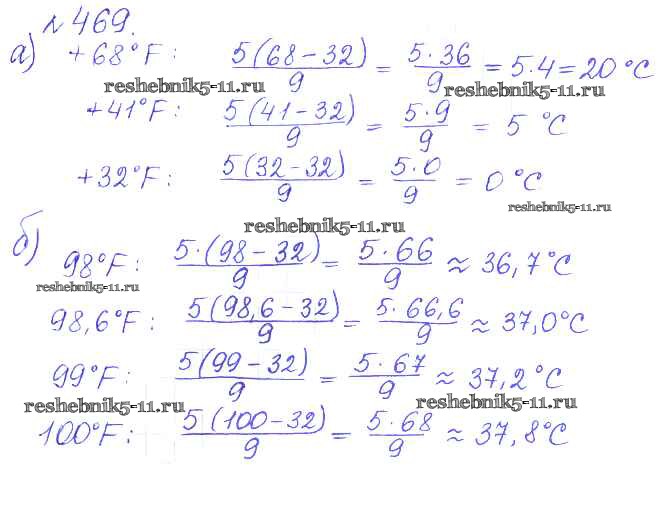 №469.
а) +68°F: 5(68-32)/9 = 5·36/9 = 5·4=20 °C
reshebnik5-11.ru reshebnik5-11.ru
+41°F: 5(41-32)/9 = 5·9/9 = 5 °C
+32°F: 5(32-32)/9 = 5·0/9 = 0 °C
reshebnik5-11.ru
reshebnik5-11.ru
б) 98°F: 5·(98-32)/9 = 5·66/9 ≈ 36,7°C
reshebnik5-11.ru
98,6°F: 5(98,6-32)/9 = 5·66,6/9 ≈ 37,0°C
99°F: 5(99-32)/9 = 5·67/9 ≈ 37,2°C
reshebnik5-11.ru reshebnik5-11.ru
100°F: 5(100-32)/9 = 5·68/9 ≈ 37,8°C